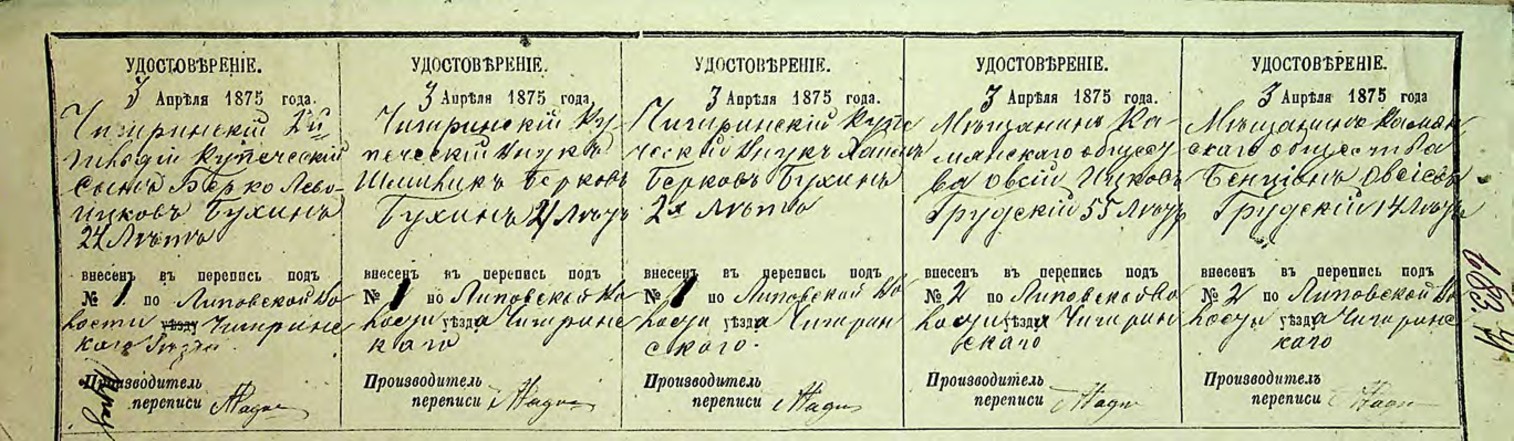 УДОСТОВѢРЕНІЕ.
3 Апрѣля 1875 года.
Чигиринскій 2й
гильдіи купеческій
сынъ Берко Лево-
ицковъ Бухинъ
24 Лѣтъ
внесенъ въ перепись подъ
№ 1. по Липовской Во
лости уѣзду Чигиринс
каго
Производитель
переписи
УДОСТОВѢРЕНІЕ.
3 Апрѣля 1875 года
Чигиринскій Ку-
печескій Внукъ
Берковъ
Бухинъ 4 Лѣтъ
внесенъ въ перепись подъ
№ 1 по Липовской Во
лости уѣзда Чигиринс
каго
Производитель
переписи
УДОСТОВѢРЕНІЕ.
3 Апрѣля 1875 года.
Чигиринскій Купе
ческій Внукъ
Берковъ Бухинъ
2х Лѣтъ
внесенъ въ перепись подъ
№ 1 по Липовской Во
лости уѣзда Чигирин
скаго.
Производитель
переписи
УДОСТОВѢРЕНІЕ.
3 Апрѣля 1875 года.
Мѣщанинъ Ка-
мянскаго общест
ва Овсій Ицковъ
Грудскій 55 Лѣтъ
внесенъ въ перепись подъ
№ 2 по Липовской Во
лости уѣзда Чигирин
скаго
Производитель
переписи
УДОСТОВѢРЕНІЕ.
3 Апрѣля 1875 года
Мѣщанинъ Камян
скаго общества
Бенціонъ Овсіевъ
Грудскій 14 Лѣтъ
внесенъ въ перепись подъ
№ 2 по Липовской Во
лости уѣзда Чигиринс
каго
Производитель
переписи